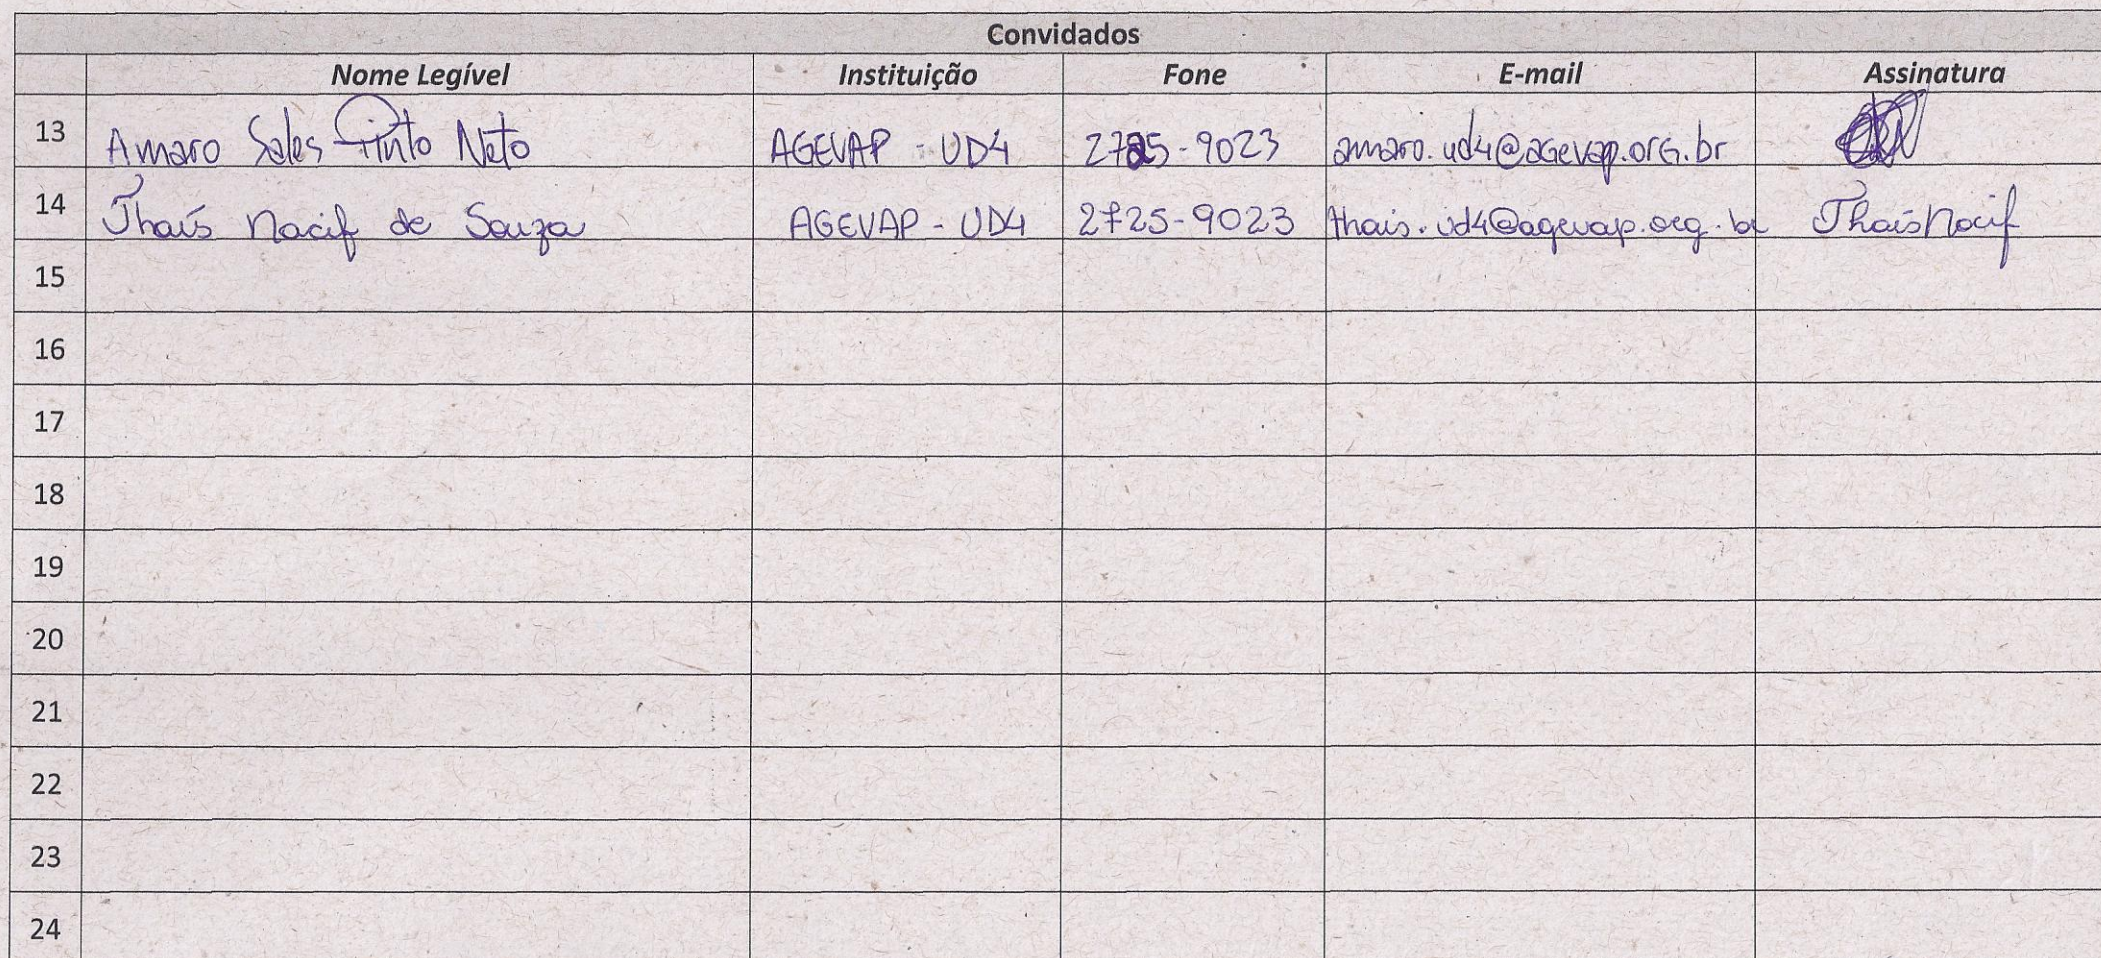 Convidados
Nome Legível Instituição Fone E-mail Assinatura
13 Amaro Sales Pinto Neto AGEVAP - UD4 2725-9023 amaro.ud4@agevap.org.br
14 Thaís Nacif de Souza AGEVAP - UD4 2725-9023 thais.ud4@agevap.org.br Thaís Nacif
15
16
17
18
19
20
21
22
23
24